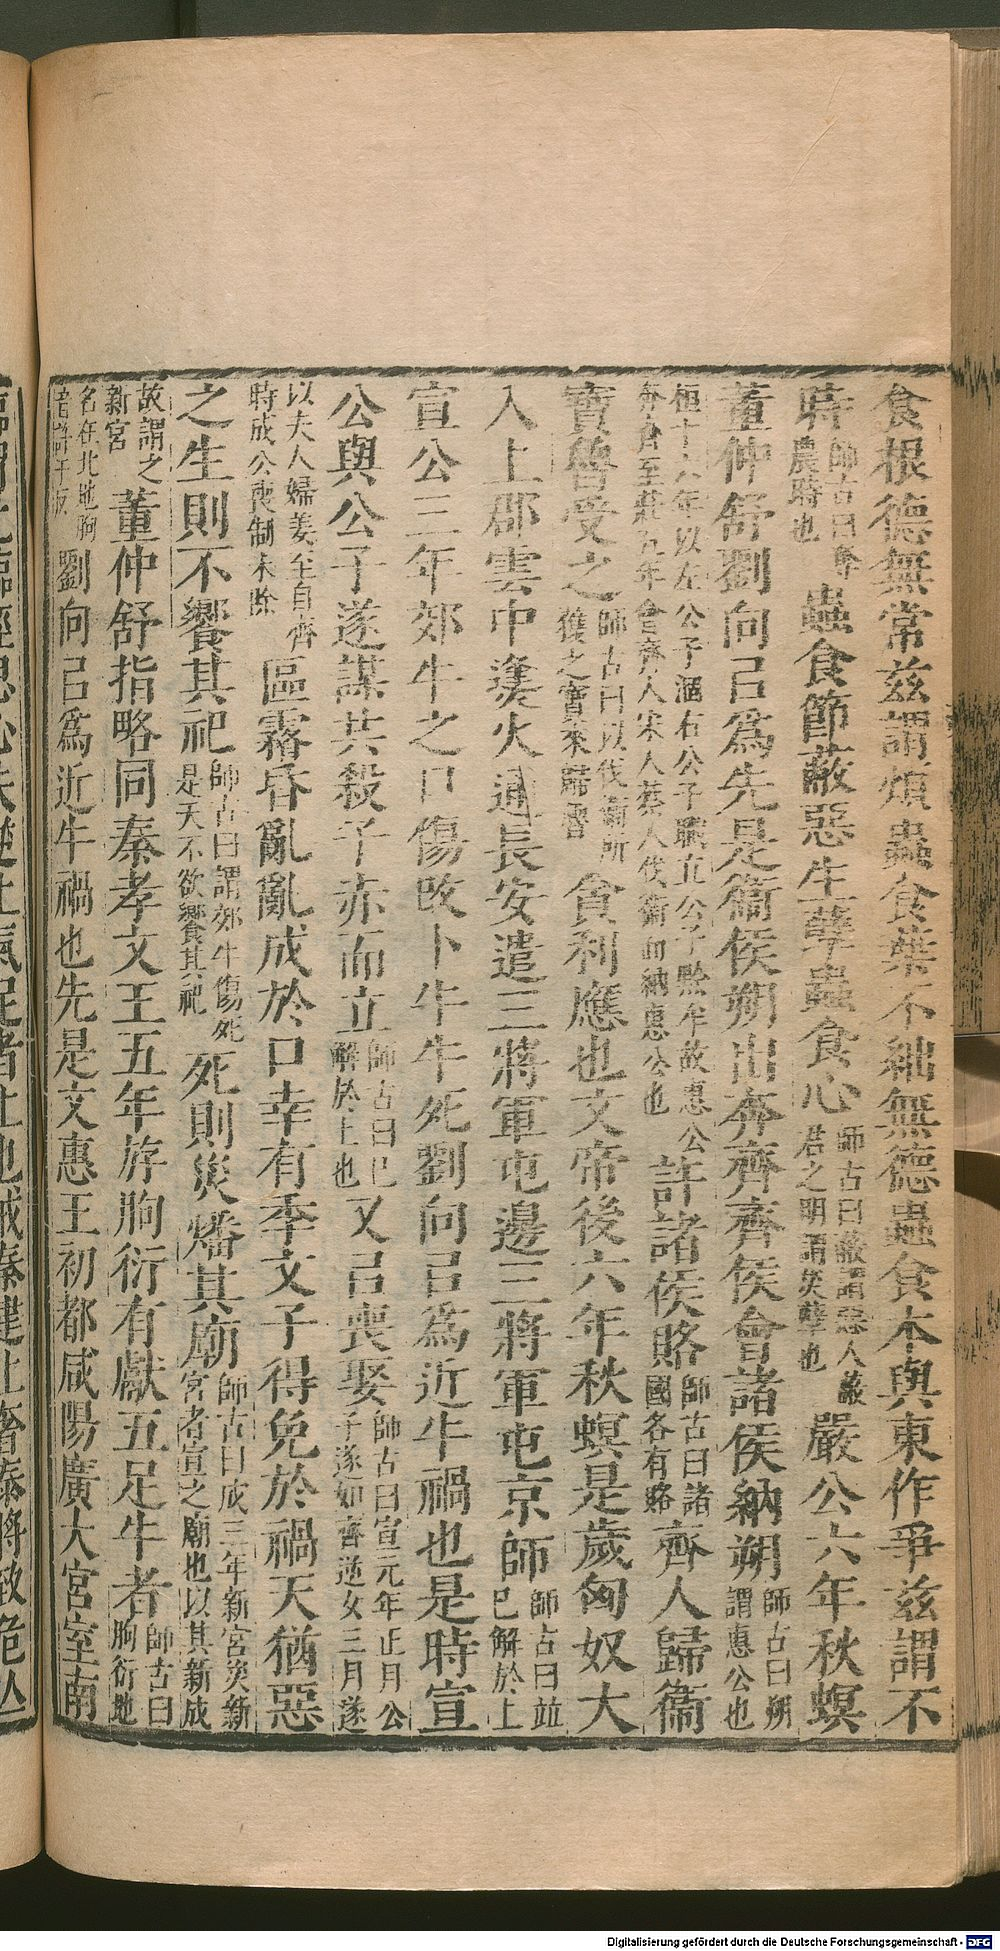 食根德無常茲謂煩蟲食葉不絀無德蟲食本與東作爭茲謂不
時師古曰奪農時也蟲食節蔽惡生孽蟲食心師古曰蔽謂惡人蔽君之明謂災孽也嚴公六年秋螟
董仲舒劉向㠯為先是衞侯朔出奔齊齊侯會諸侯納朔師古曰朔謂惠公也
桓十六年以左公子洩右公子職立公子黔牟故惠公奔齊至莊五年會齊人宋人蔡人伐衞而納惠公也許諸侯賂師古曰諸國各有賂齊人歸衞
寶魯受之師古曰以伐衞所獲之寶來歸魯貪利應也文帝後六年秋螟是歲匈奴大
入上郡雲中㷭火通長安遣三將軍屯邊三將軍屯京師師古曰並已解於上
宣公三年郊牛之口傷改卜牛牛死劉向㠯為近牛禍也是時宣
公與公子遂謀共殺子赤而立師古曰已解於上也又㠯喪娶師古曰宣元年正月公子遂如齊逆女三月遂
以夫人婦姜至自齊時成公喪制未除區霿昏亂亂成於口幸有季文子得免於禍天猶惡
之生則不饗其祀師古曰謂郊牛傷死是天不欲饗其祀死則災燔其廟師古曰成三年新宮災新宮者宣之廟也以其新成
故謂之新宮董仲舒指略同秦孝文王五年斿朐衍有獻五足牛者師古曰朐衍地
名在北地朐音許于反劉向㠯為近牛禍也先是文惠王初都咸陽廣大宮室南